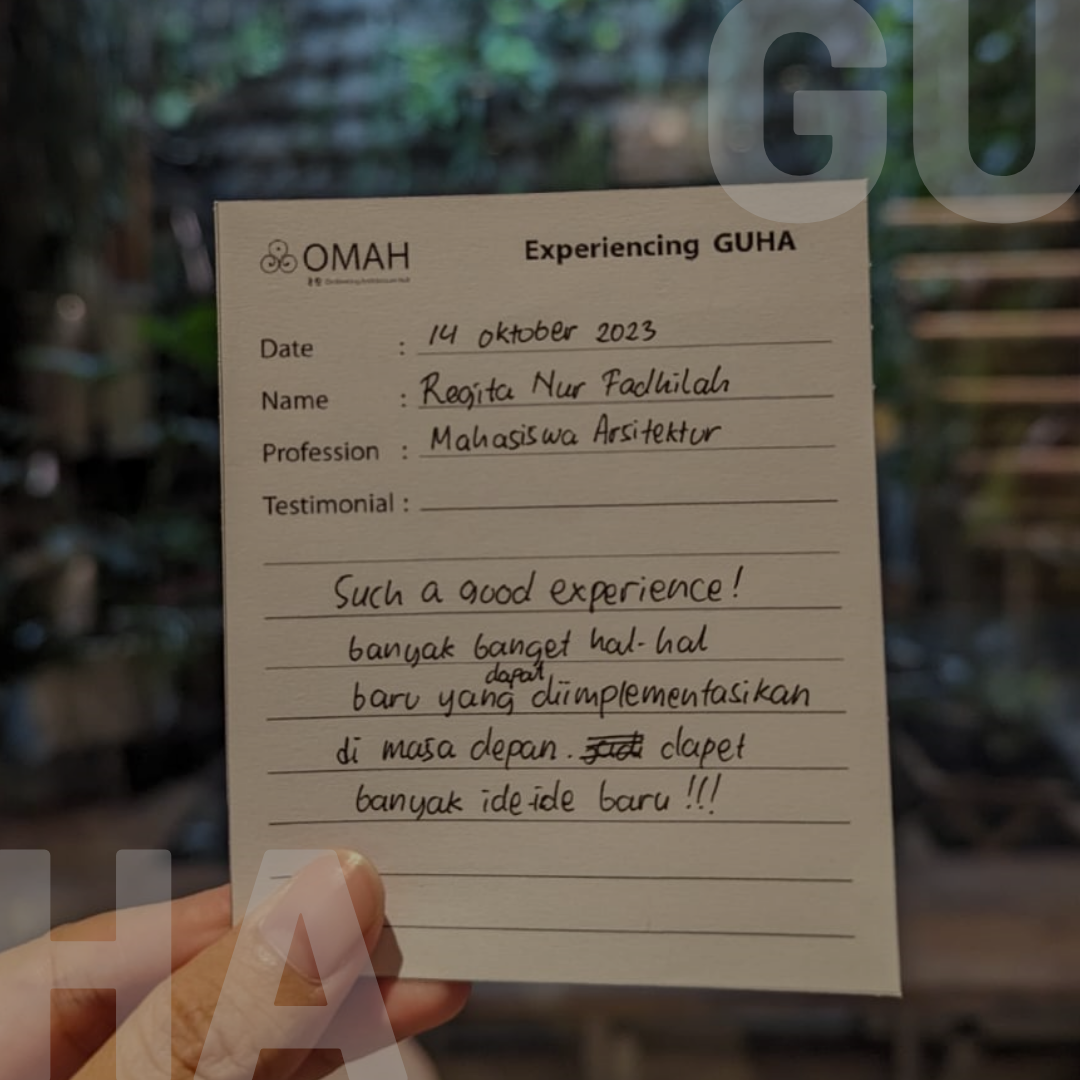 GU
OMAH
Experiencing GUHA
Date : 14 oktober 2023
Name : Regita Nur Fadhilah
Profession : Mahasiswa Arsitektur
Testimonial :
Such a good experience!
banyak banget hal-hal
dapat
baru yang diimplementasikan
di masa depan. dapet
banyak ide-ide baru !!!
HA